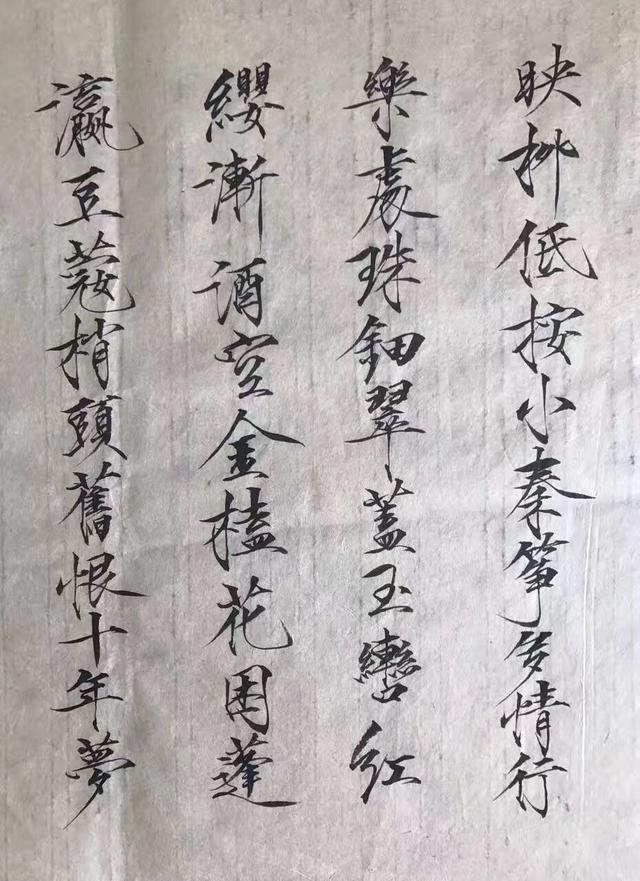 映柳低按小秦箏多情行
樂處珠鈿翠蓋玉轡紅
纓漸酒空金榼花困蓬
瀛豆蔻梢頭舊恨十年夢